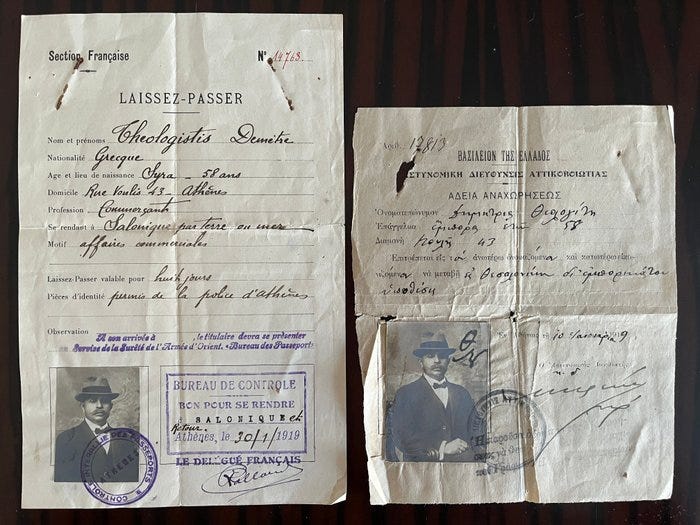 Section Française
N° 14768
LAISSEZ-PASSER
Nom et prénoms Theologistis Demètre
Nationalité Grecque
Age et lieu de naissance Syra - 58 ans
Domicile Rue Voulis 43 - Athènes
Profession Commerçant
Se rendant à Salonique par terre ou mer
Motif affaires commerciales
Laissez-Passer valable pour huit jours
Pièces d'identité permis de la police d'Athènes
Observation
A son arrivée à le titulaire devra se présenter
Service de la Sureté de l'Armée d'Orient. «Bureau des Passeports
CONTROLE INTERALLIE DES PASSEPORTS
ATHENES
BUREAU DE CONTROLE
BON POUR SE RENDRE
A SALONIQUE et
Retour.
Athènes, le 30/1/1919
LE DELEGUÉ FRANÇAIS
Αριθ. 17813
ΒΑΣΙΛΕΙΟΝ ΤΗΣ ΕΛΛΑΔΟΣ
ΑΣΤΥΝΟΜΙΚΗ ΔΙΕΥΘΥΝΣΙΣ ΑΤΤΙΚΟΒΟΙΩΤΙΑΣ
ΑΔΕΙΑ ΑΝΑΧΩΡΗΣΕΩΣ
Ὀνοματεπώνυμον Δημήτριος Θεολογίτη
Ἐπάγγελμα ἔμπορος ἐτῶν 58
Διαμονὴ Βουλῆς 43
Ἐπιτρέπεται εἰς τὸν ἀνωτέρω ὀνομαζόμενον καὶ κατωτέρω
νὰ μεταβῇ εἰς Θεσσαλονίκην
Ἐν Ἀθήναις τῇ 10 9